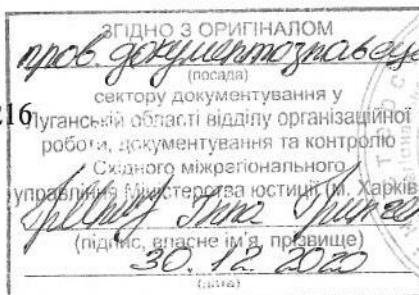 ЗГІДНО З ОРИГІНАЛОМ
пров. документознавець
(посада)
сектору документування у
16 Луганській області відділу організаційної
роботи, документування та контролю
Східного міжрегіонального
управління Міністерства юстиції (м. Харків
Інна
(підпис, власне ім'я, прізвище)
30.12.2020
(дата)